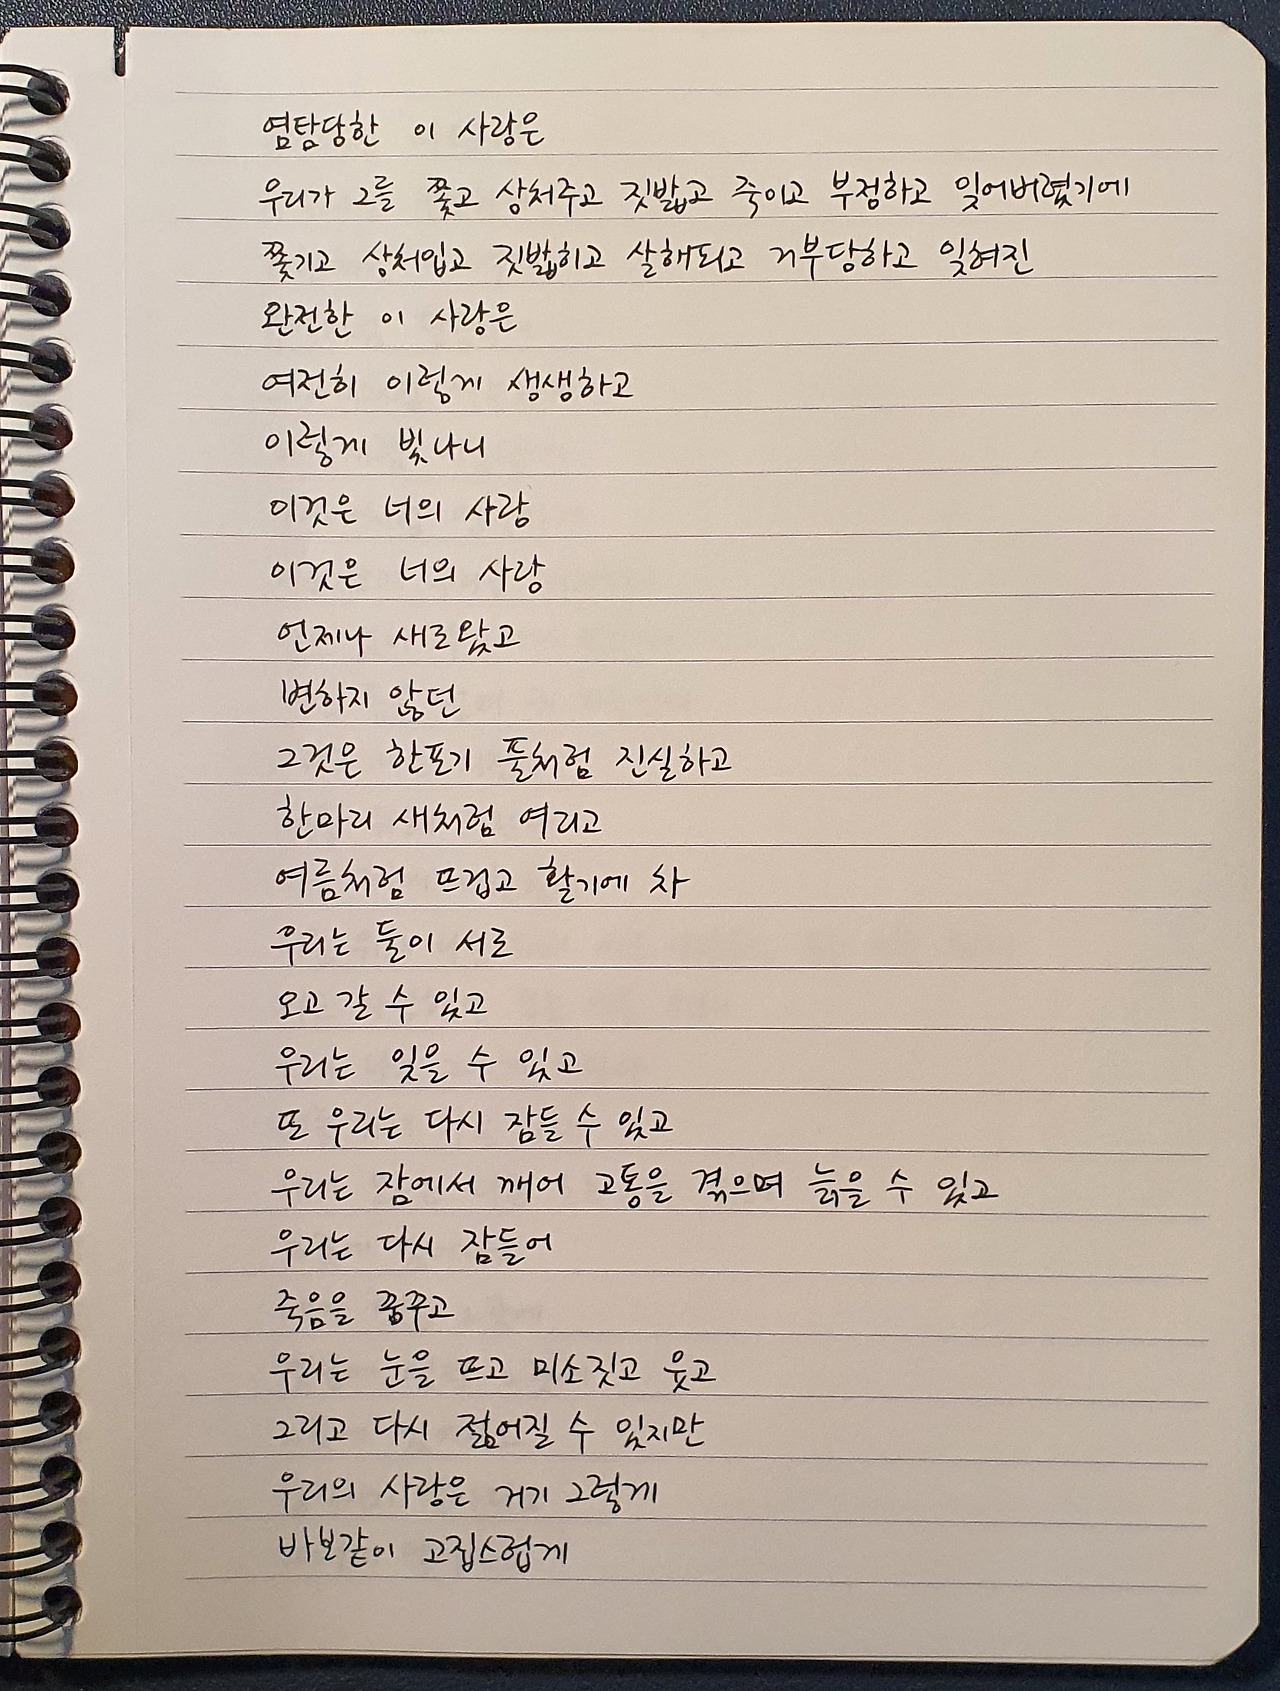 염탐당한 이 사랑은
우리가 그를 쫓고 상처주고 짓밟고 죽이고 부정하고 잊어버렸기에
쫓기고 상처입고 짓밟히고 살해되고 거부당하고 잊혀진
완전한 이 사랑은
여전히 이렇게 생생하고
이렇게 빛나니
이것은 너의 사랑
이것은 너의 사랑
언제나 새로왔고
변하지 않던
그것은 한포기 풀처럼 진실하고
한마리 새처럼 여리고
여름처럼 뜨겁고 활기에 차
우리는 둘이 서로
오고 갈 수 있고
우리는 잊을 수 있고
또 우리는 다시 잠들 수 있고
우리는 잠에서 깨어 고통을 겪으며 늙을 수 있고
우리는 다시 잠들어
죽음을 꿈꾸고
우리는 눈을 뜨고 미소짓고 웃고
그리고 다시 젊어질 수 있지만
우리의 사랑은 거기 그렇게
바보같이 고집스럽게